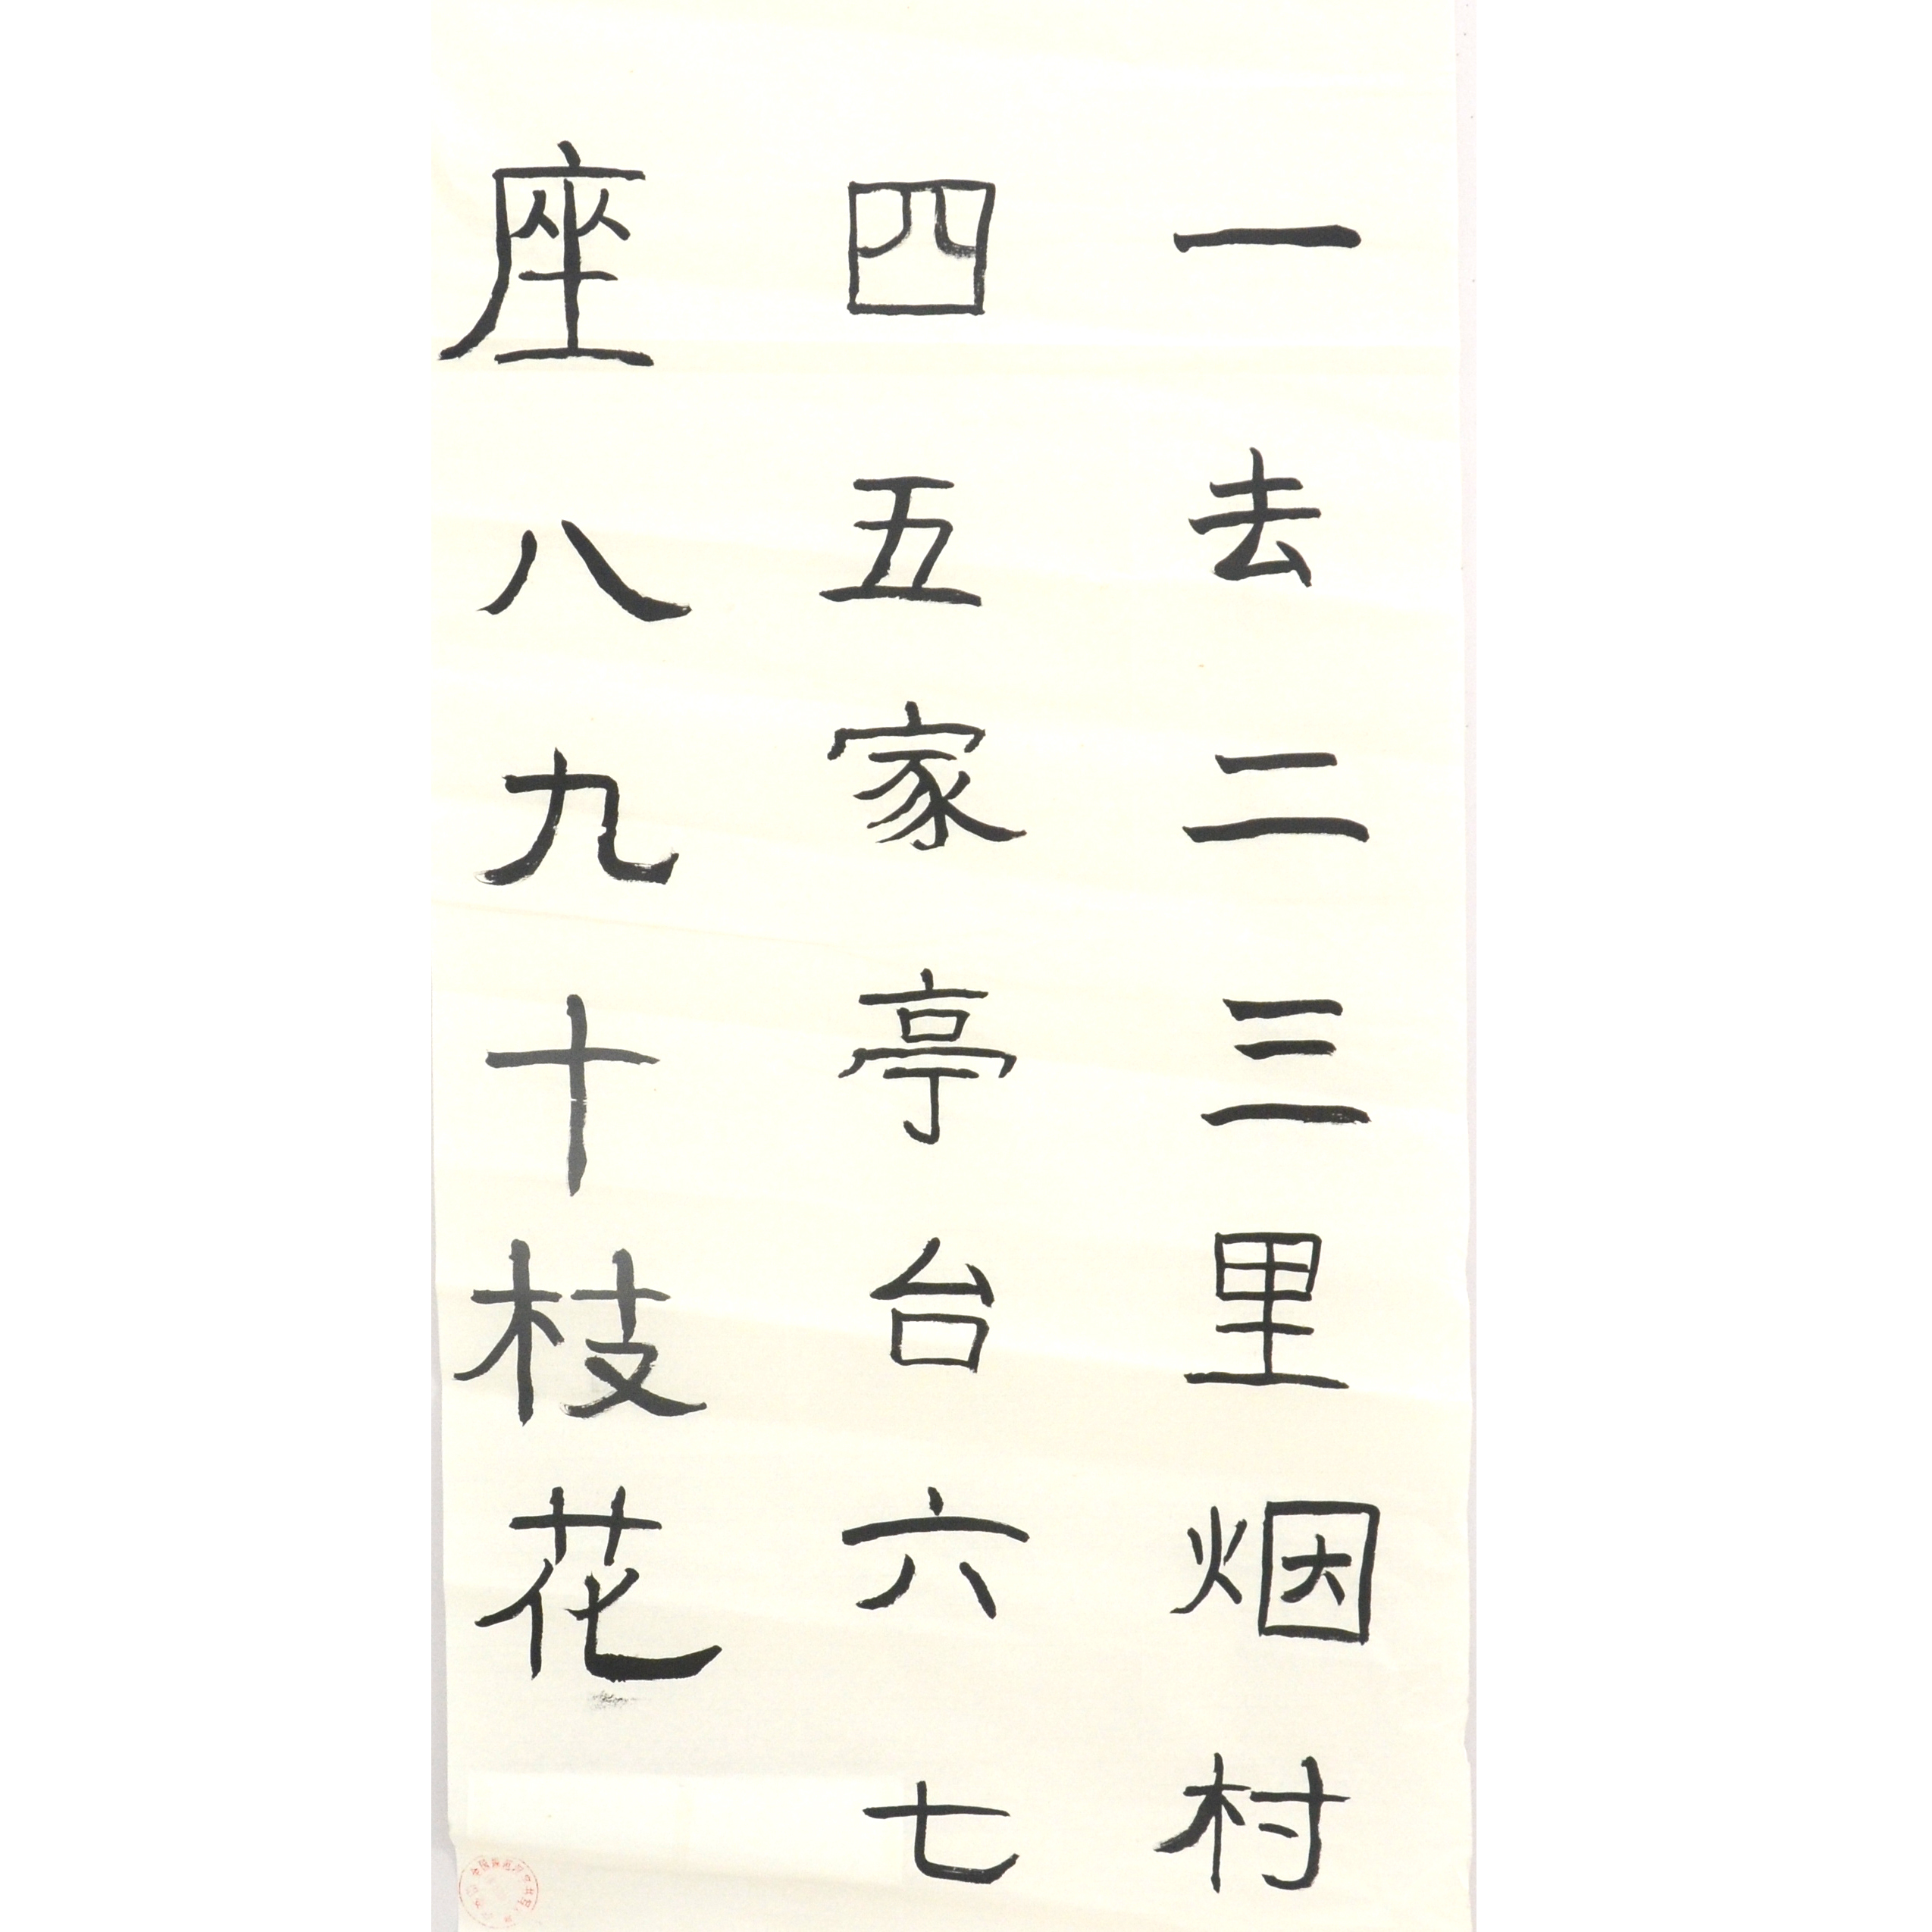 一去二三里烟村
四五家亭台六七
座八九十枝花